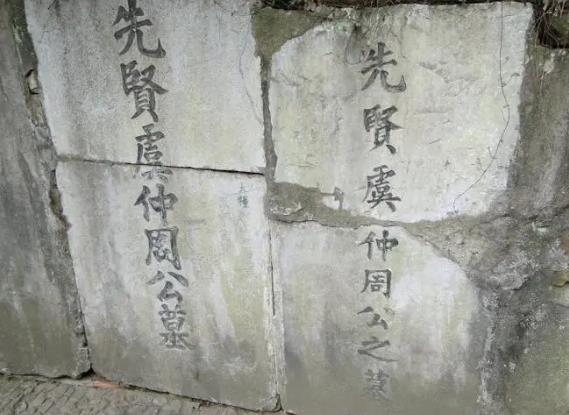 先賢虞仲周公之墓
先賢虞仲周公墓